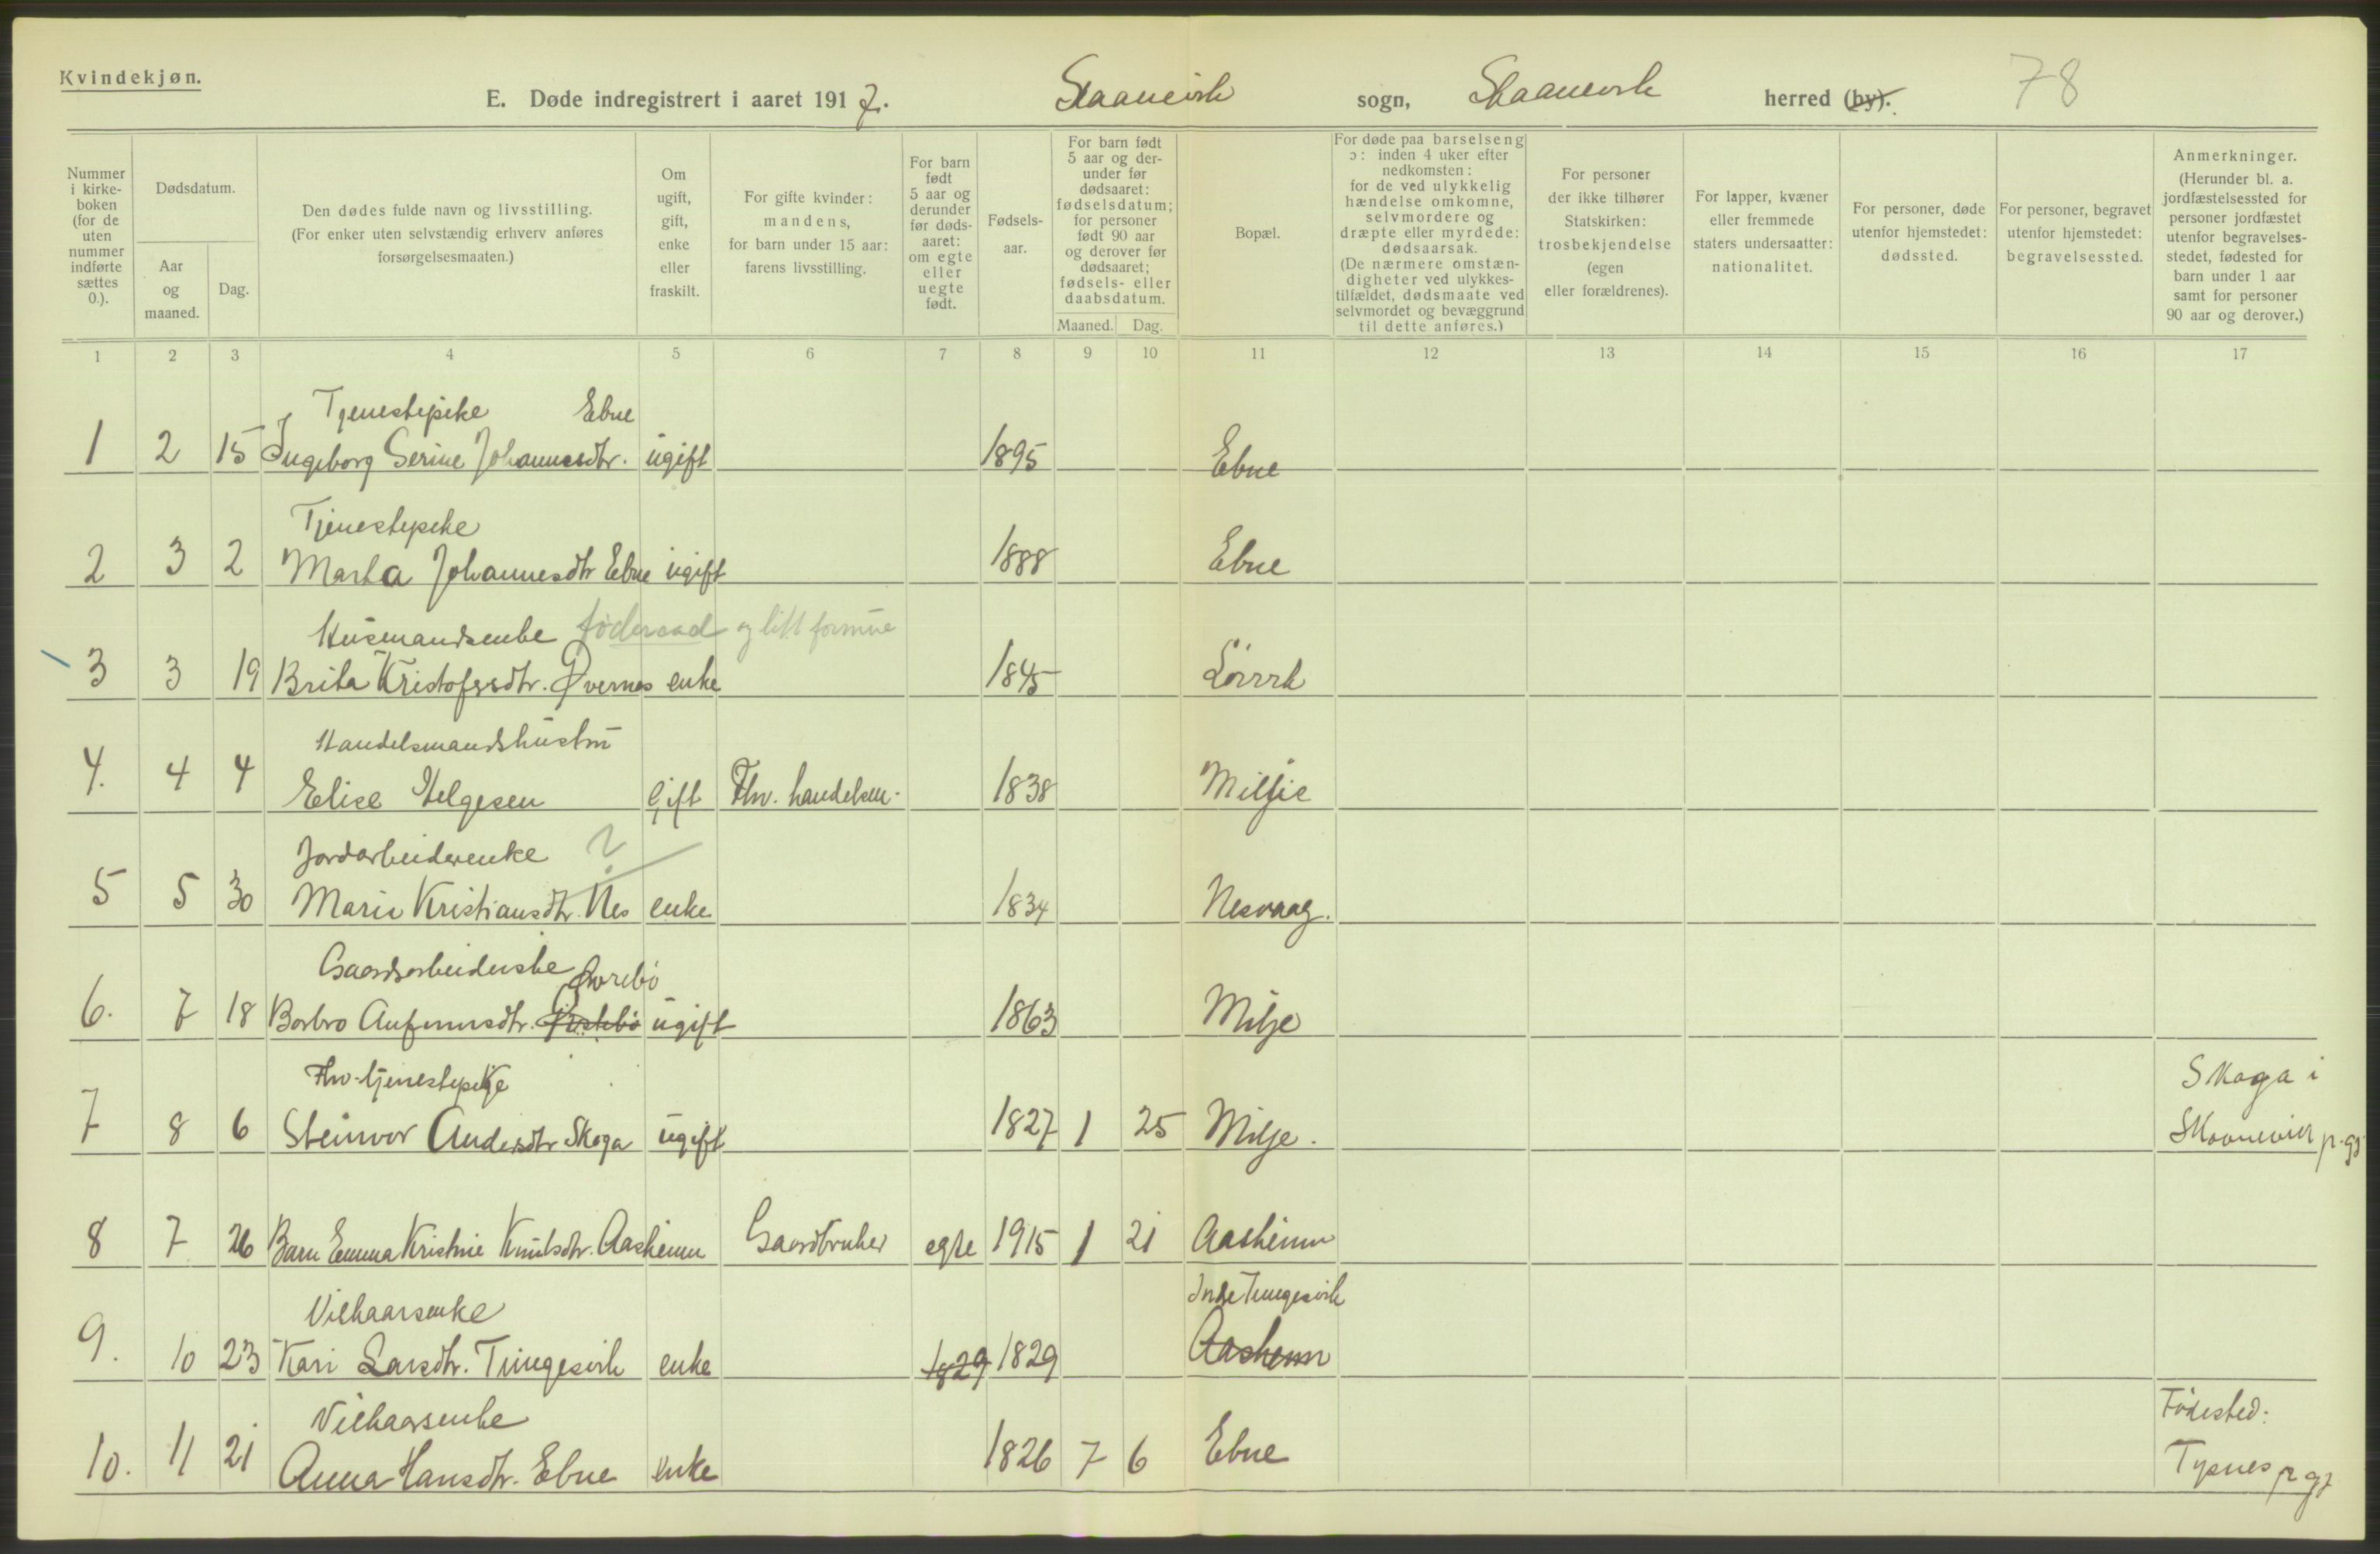 Kvindekjøn.
E. Døde indregistrert i aaret 1917. Skaanevik sogn, Skaanevik herred (by). 78
Nummer i kirke-boken (for de uten nummer indførte sættes 0.).
Dødsdatum.
Aar og maaned.
Dag.
Den dødes fulde navn og livsstilling.
(For enker uten selvstændig erhverv anføres forsørgelsesmaaten.)
Om ugift, gift, enke eller fraskilt.
For gifte kvinder: mandens, for barn under 15 aar: farens livsstilling.
For barn født 5 aar og derunder før døds-aaret: om egte eller uegte født.
Fødsels-aar.
For barn født 5 aar og der-under før dødsaaret: fødselsdatum; for personer født 90 aar og derover før dødsaaret; fødsels- eller daabsdatum.
Maaned. Dag.
Bopæl.
For døde paa barselseng ɔ: inden 4 uker efter nedkomsten: for de ved ulykkelig hændelse omkomne, selvmordere og dræpte eller myrdede: dødsaarsak. (De nærmere omstæn-digheter ved ulykkes-tilfældet, dødsmaate ved selvmordet og bevæggrund til dette anføres.)
For personer der ikke tilhører Statskirken: trosbekjendelse (egen eller forældrenes).
For lapper, kvæner eller fremmede staters undersaatter: nationalitet.
For personer, døde utenfor hjemstedet: dødssted.
For personer, begravet utenfor hjemstedet: begravelsessted.
Anmerkninger. (Herunder bl. a. jordfæstelsessted for personer jordfæstet utenfor begravelses-stedet, fødested for barn under 1 aar samt for personer 90 aar og derover.)
1 2 3 4 5 6 7 8 9 10 11 12 13 14 15 16 17
Tjenestepike Ebne
1 2 15 Ingeborg Serine Johannesdtr. ugift 1895 Ebne
Tjenestepike
2 3 2 Marta Johannesdtr Ebne ugift 1888 Ebne
Husmandsenke føderaad og litt formue
3 3 19 Brita Kristofersdtr. Øvernes enke 1845
Handelsmandshustru
4. 4 4 Elise Helgesen Gift Fhv. handelsm. 1838 Milje
Jordarbeiderenke ?
5 5 30 Marie Kristiansdtr. Nes enke 1834 Nesvaag.
Gaardsarbeiderske
6. 7 18 Borbro ugift 1863 Milje
Fhv. tjenestepike
7 8 6 Steinvor Andersdtr Skoga ugift 1827 1 25 Milje. Skoga i Skaanevik p.gj.
8 7 26 Barn Emma Kristine Knutsdtr. Aasheim Gaardbruker egte 1915 1 21 Aasheim
Vilkaarsenke Indre Tungesvik
9. 10 23 Kari Larsdtr. Tungesvik enke 1829 1829 Aasheim
Vilkaarsenke Fødested:
10. 11 21 Anna Hansdtr. Ebne enke 1826 7 6 Ebne Tysnes p gj